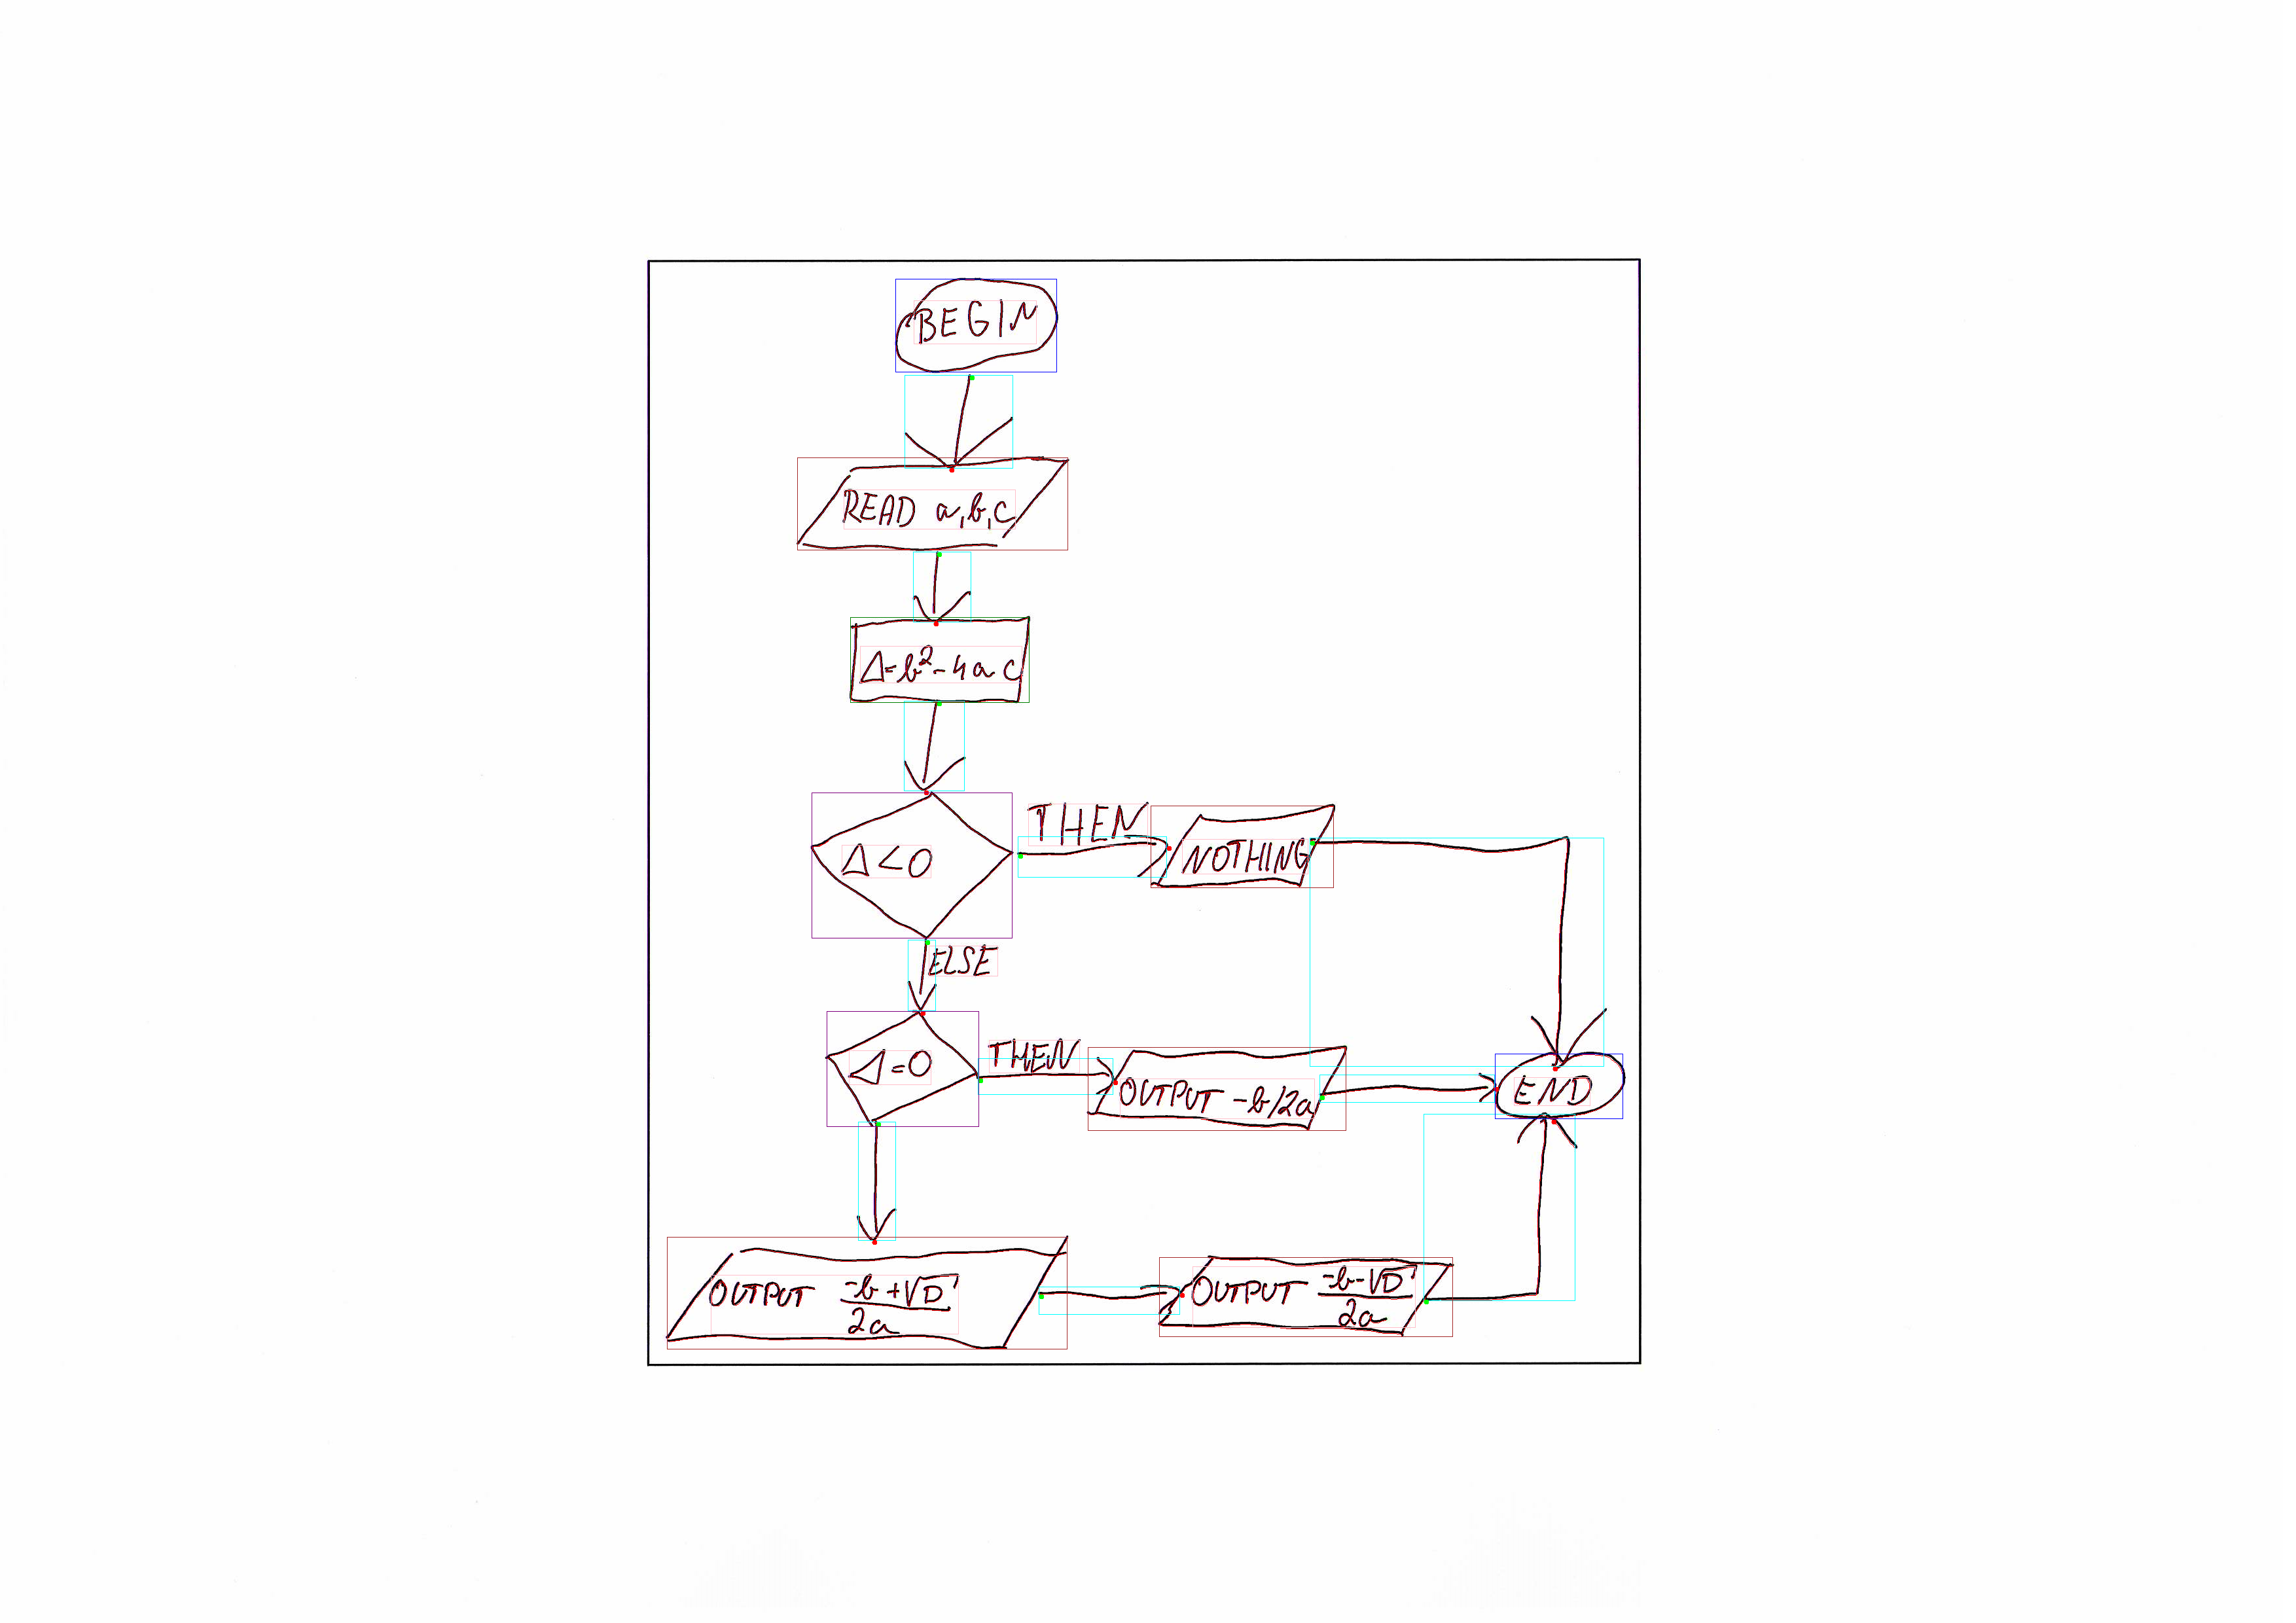 BEGIN
READ a,b,c
Δ=b²-4ac
Δ<0
THEN
NOTHING
ELSE
Δ=0
THEN
OUTPUT -b/2a
END
OUTPUT (-b+√D)/2a
OUTPUT (-b-√D)/2a